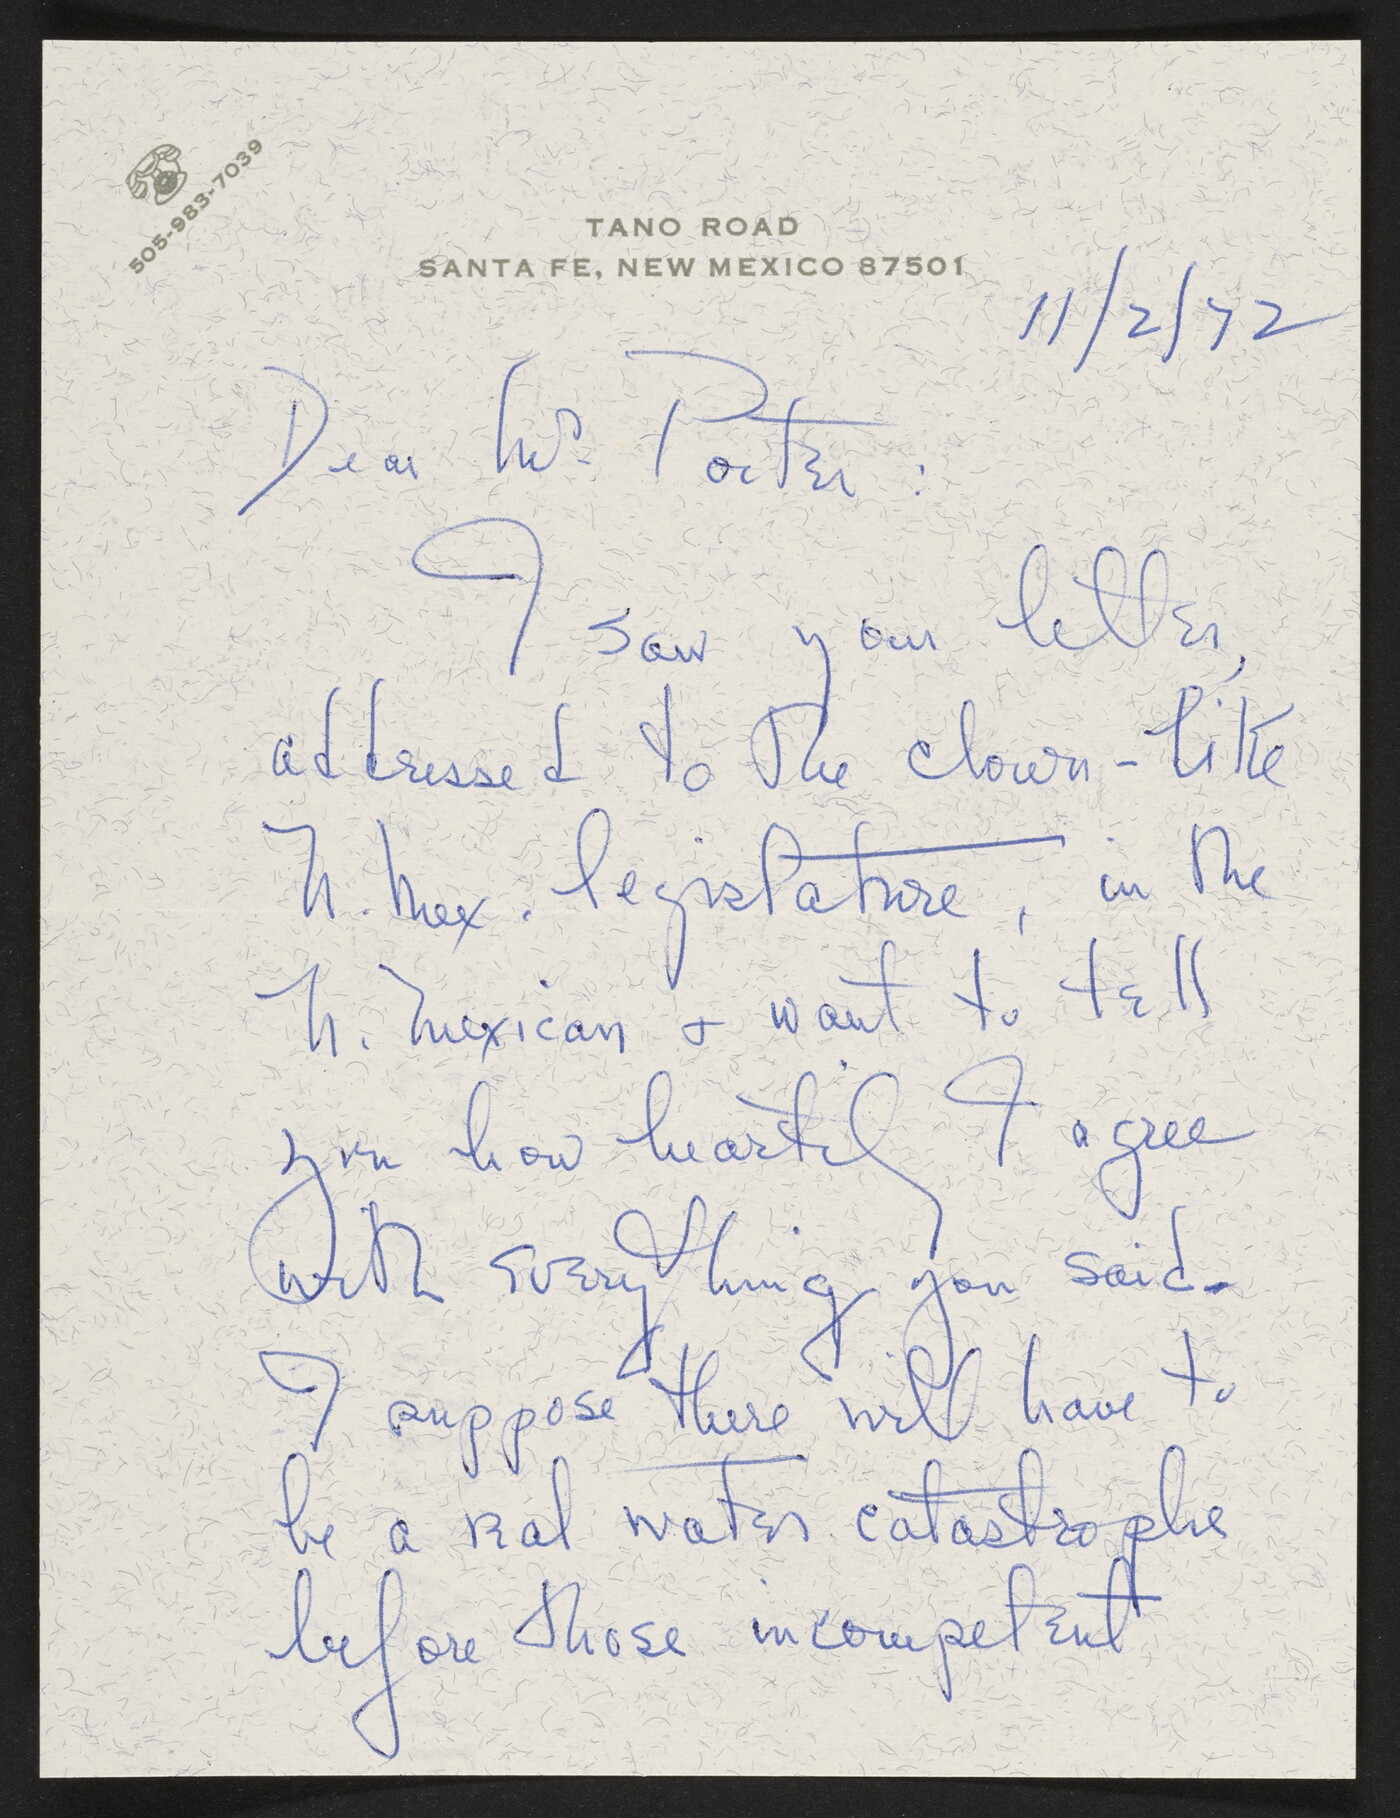 505-983-7039
TANO ROAD
SANTA FE, NEW MEXICO 87501
11/2/72
Dear Mr. Porter:
I saw your letter,
addressed to the clown-like
N. Mex. legislature, in the
N. Mexican & want to tell
you how heartily I agree
with everything you said.
I suppose there will have to
be a real water catastrophe
before those incompetent